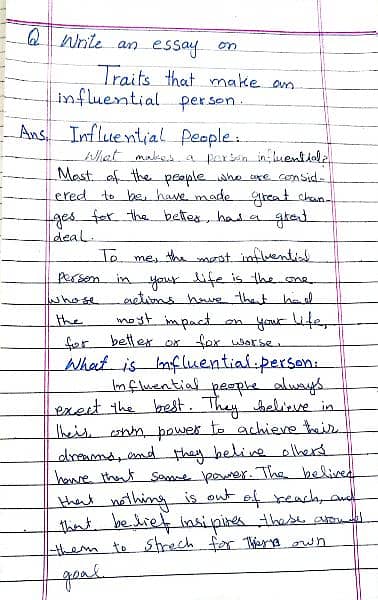 Q Write an essay on
Traits that make an
influential person.
Ans. Influential People:
What makes a person influential?
Most of the people who are consid-
ered to be, have made great chan-
ges for the better, has a great
deal.
To me, the most influential
Person in your life is the one
whose actions have that had
the most impact on your Life,
for better or for worse.
What is Influential person:
Influential people always
exect the best. They believe in
their own power to achieve their
dreams, and they belive others
have that same power. The belives
that nothing is out of reach, and
that belief insipires those around
them to strech for own
goal